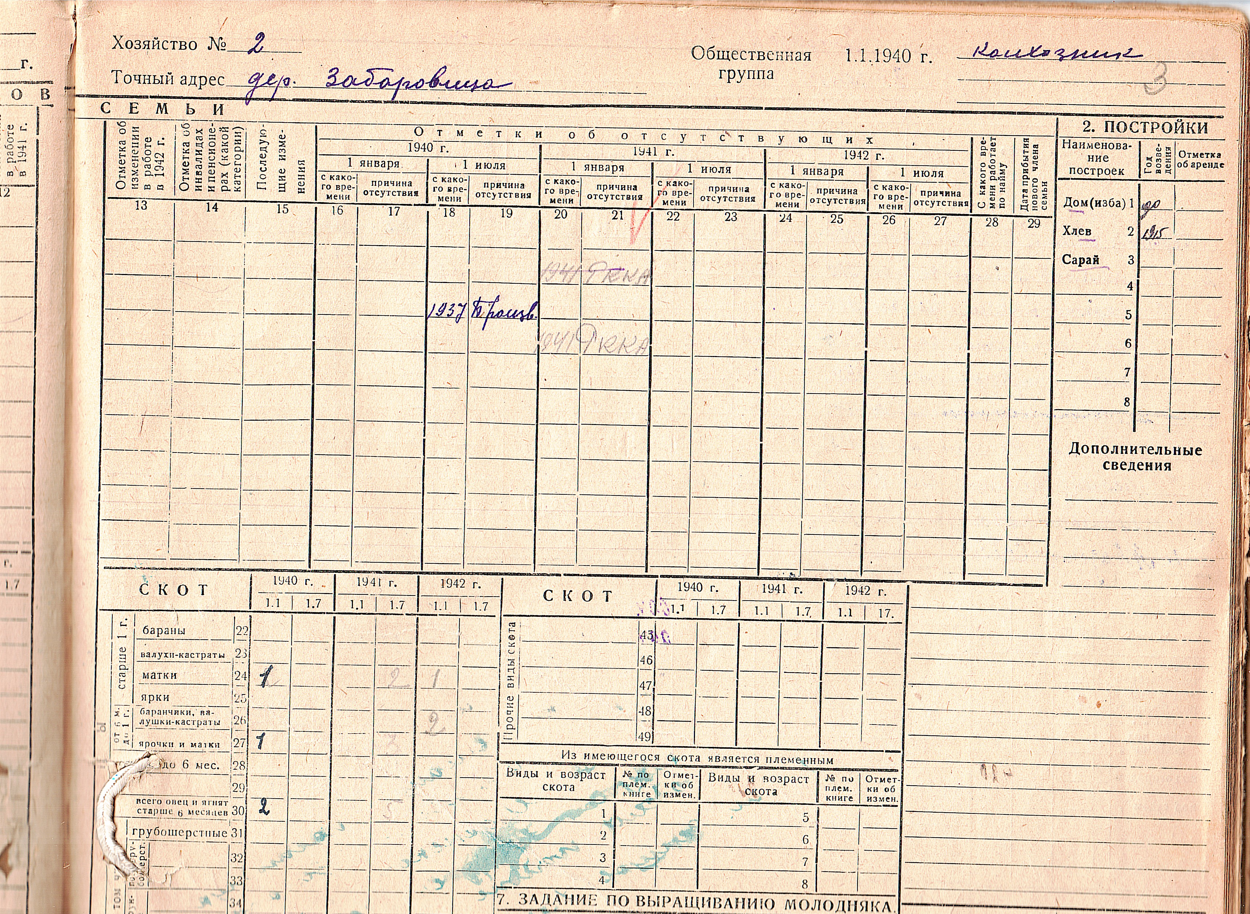 Хозяйство № 2
Точный адрес дер. Забаровица
Общественная группа 1.1.1940 г. колхозник
3
г.
О В
в работе в 1941 г.
12
СЕМЬИ
Отметка об изменении в работе в 1942 г.
Отметка об инвалидах и пенсионерах (какой категории)
Последующие изменения
Отметки об отсутствующих
1940 г. 1941 г. 1942 г.
1 января 1 июля 1 января 1 июля 1 января 1 июля
с какого времени причина отсутствия с какого времени причина отсутствия с какого времени причина отсутствия с какого времени причина отсутствия с какого времени причина отсутствия с какого времени причина отсутствия
С какого времени работает по найму
Дата прибытия нового члена семьи
13 14 15 16 17 18 19 20 21 22 23 24 25 26 27 28 29
1941 РККА
1937
1941 РККА
2. ПОСТРОЙКИ
Наименование построек
Год возведения
Отметка об аренде
Дом (изба) 1 до
Хлев 2 1915
Сарай 3
4
5
6
7
8
Дополнительные сведения
г.
1.7
СКОТ 1940 г. 1941 г. 1942 г.
1.1 1.7 1.1 1.7 1.1 1.7
старше 1 г.
бараны 22
валухи-кастраты 23
матки 24 1 2 1
ярки 25
от 6 м. до 1 г.
баранчики, валушки-кастраты 26 2
ярочки и матки 27 1
до 6 мес. 28
29
всего овец и ягнят старше 6 месяцев 30 2
грубошерстные 31
32
33
34
СКОТ 1940 г. 1941 г. 1942 г.
1.1 1.7 1.1 1.7. 1.1 17.
Прочие виды скота
45
46
47
48
49
Из имеющегося скота является племенным
Виды и возраст скота № по плем. книге Отметки об измен. Виды и возраст скота № по плем. книге Отметки об измен.
1 5
2 6
3 7
4 8
7. ЗАДАНИЕ ПО ВЫРАЩИВАНИЮ МОЛОДНЯКА.